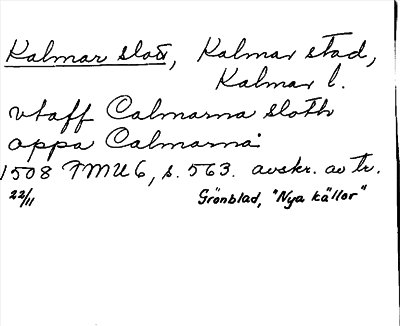 Kalmar slott, Kalmar stad,
Kalmar l.
vtaff Calmarna sloth
oppa Calmarna:
1508 FMU 6, s. 563. avskr. av tr.
22/11 Grönblad, "Nya källor"